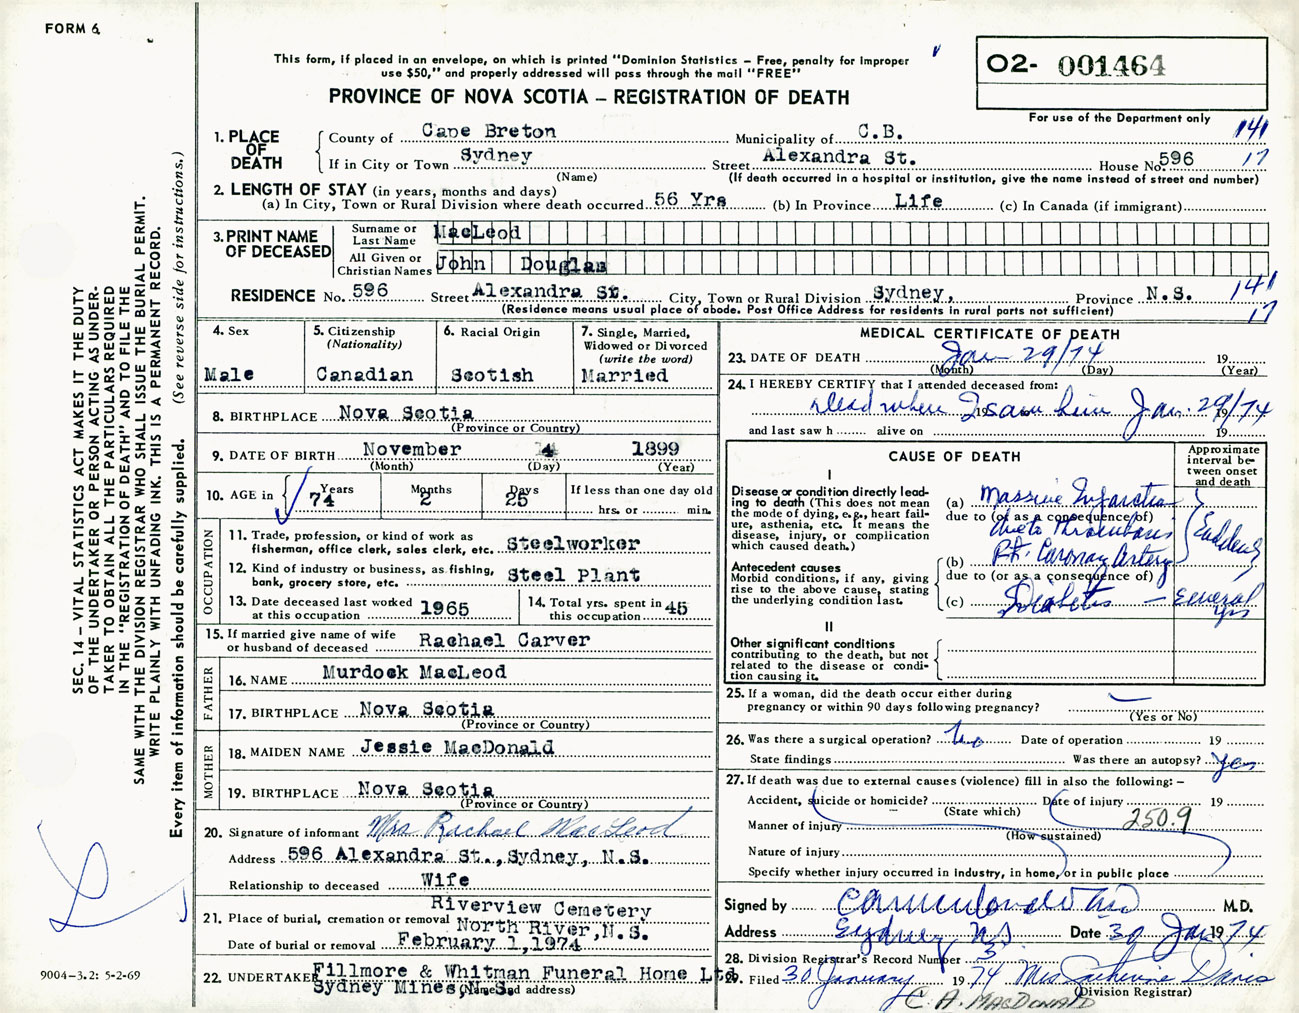 FORM 6
This form, if placed in an envelope, on which is printed "Dominion Statistics – Free, penalty for improper
use $50," and properly addressed will pass through the mail "FREE"
PROVINCE OF NOVA SCOTIA – REGISTRATION OF DEATH
O2- 001464
For use of the Department only
141
17
1. PLACE OF DEATH
County of Cape Breton Municipality of C.B.
If in City or Town Sydney Street Alexandra St. House No. 596
(Name) (If death occurred in a hospital or institution, give the name instead of street and number)
2. LENGTH OF STAY (in years, months and days)
(a) In City, Town or Rural Division where death occurred 56 Yrs (b) In Province Life (c) In Canada (if immigrant)
3. PRINT NAME OF DECEASED
Surname or Last Name MacLeod
All Given or Christian Names John Douglas
RESIDENCE No. 596 Street Alexandra St. City, Town or Rural Division Sydney, Province N.S. 141
(Residence means usual place of abode. Post Office Address for residents in rural parts not sufficient) 17
4. Sex Male
5. Citizenship (Nationality) Canadian
6. Racial Origin Scotish
7. Single, Married, Widowed or Divorced (write the word) Married
8. BIRTHPLACE Nova Scotia
(Province or Country)
9. DATE OF BIRTH November 4 1899
(Month) (Day) (Year)
10. AGE in Years 74 Months 2 Days 25 If less than one day old hrs. or min.
OCCUPATION
11. Trade, profession, or kind of work as fisherman, office clerk, sales clerk, etc. Steelworker
12. Kind of industry or business, as fishing, bank, grocery store, etc. Steel Plant
13. Date deceased last worked at this occupation 1965
14. Total yrs. spent in this occupation 45
15. If married give name of wife or husband of deceased Rachael Carver
FATHER
16. NAME Murdock MacLeod
17. BIRTHPLACE Nova Scotia
(Province or Country)
MOTHER
18. MAIDEN NAME Jessie MacDonald
19. BIRTHPLACE Nova Scotia
(Province or Country)
20. Signature of informant Mrs Rachael MacLeod
Address 596 Alexandra St., Sydney, N.S.
Relationship to deceased Wife
21. Place of burial, cremation or removal Riverview Cemetery
North River, N.S.
Date of burial or removal February 1, 1974
22. UNDERTAKER Fillmore & Whitman Funeral Home Ltd.
Sydney Mines, N.S.
(Name and address)
MEDICAL CERTIFICATE OF DEATH
23. DATE OF DEATH Jan 29/74 19
(Month) (Day) (Year)
24. I HEREBY CERTIFY that I attended deceased from:
Dead when I saw him Jan. 29/74
19 19
and last saw h alive on 19
CAUSE OF DEATH
Approximate interval between onset and death
I
Disease or condition directly leading to death (This does not mean the mode of dying, e.g., heart failure, asthenia, etc. It means the disease, injury, or complication which caused death.)
(a) Massive Infarction
due to (or as a consequence of)
due to Thrombosis
(b) Rt. Coronary Artery
Suddenly
Antecedent causes
Morbid conditions, if any, giving rise to the above cause, stating the underlying condition last.
due to (or as a consequence of)
(c) Diabetes – Several yrs
II
Other significant conditions contributing to the death, but not related to the disease or condition causing it.
25. If a woman, did the death occur either during pregnancy or within 90 days following pregnancy?
(Yes or No)
26. Was there a surgical operation? No Date of operation 19
State findings Was there an autopsy? Yes
27. If death was due to external causes (violence) fill in also the following: –
Accident, suicide or homicide? Date of injury 19
(State which)
Manner of injury 250.9
(How sustained)
Nature of injury
Specify whether injury occurred in industry, in home, or in public place
Signed by M.D.
Address Sydney NS Date 30 Jan 1974
28. Division Registrar's Record Number 3
29. Filed 30 January 1974 Mrs Catherine Davis
(Division Registrar)
C. A. MACDONALD
SEC. 14 – VITAL STATISTICS ACT MAKES IT THE DUTY
OF THE UNDERTAKER OR PERSON ACTING AS UNDER-
TAKER TO OBTAIN ALL THE PARTICULARS REQUIRED
IN THE "REGISTRATION OF DEATH" AND TO FILE THE
SAME WITH THE DIVISION REGISTRAR WHO SHALL ISSUE THE BURIAL PERMIT.
WRITE PLAINLY WITH UNFADING INK. THIS IS A PERMANENT RECORD.
Every item of information should be carefully supplied. (See reverse side for instructions.)
9004-3.2: 5-2-69